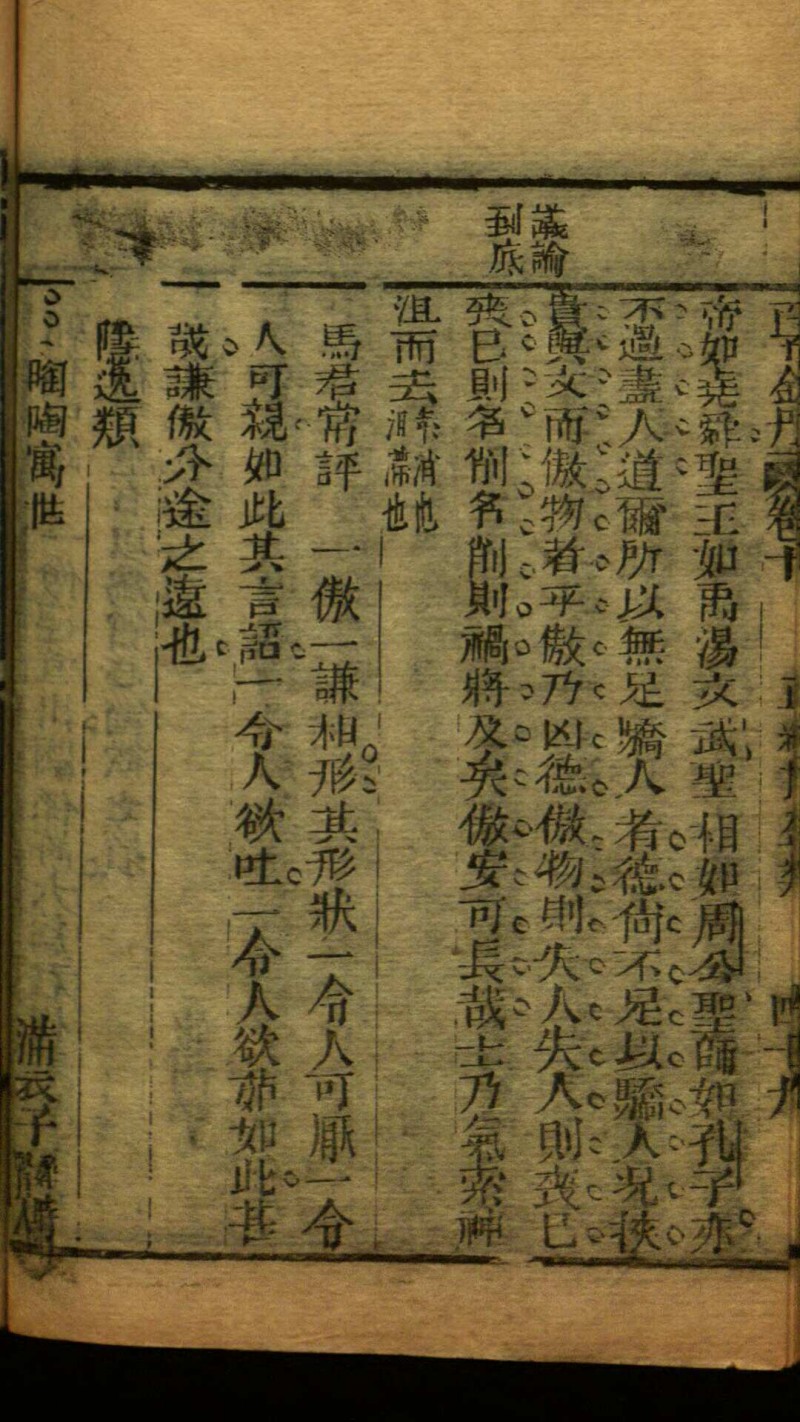 議論
到底
帝如堯舜聖王如禹湯文武聖相如周公聖師如孔子亦
不過盡人道爾所以無足驕人者德尚不足以驕人况挾
貴與文而傲物者乎傲乃凶德傲物則失人失人則喪已
喪已則名削名削則禍將及矣傲安可長哉士乃氣索神
沮而去索消也沮喪也
馬君常評 一傲一謙相形其形狀一令人可厭一令
人可親如此其言語一令人欲吐一令人欲茹如此甚
哉謙傲分途之遠也
隱逸類
陶陶寓世 滿衣子